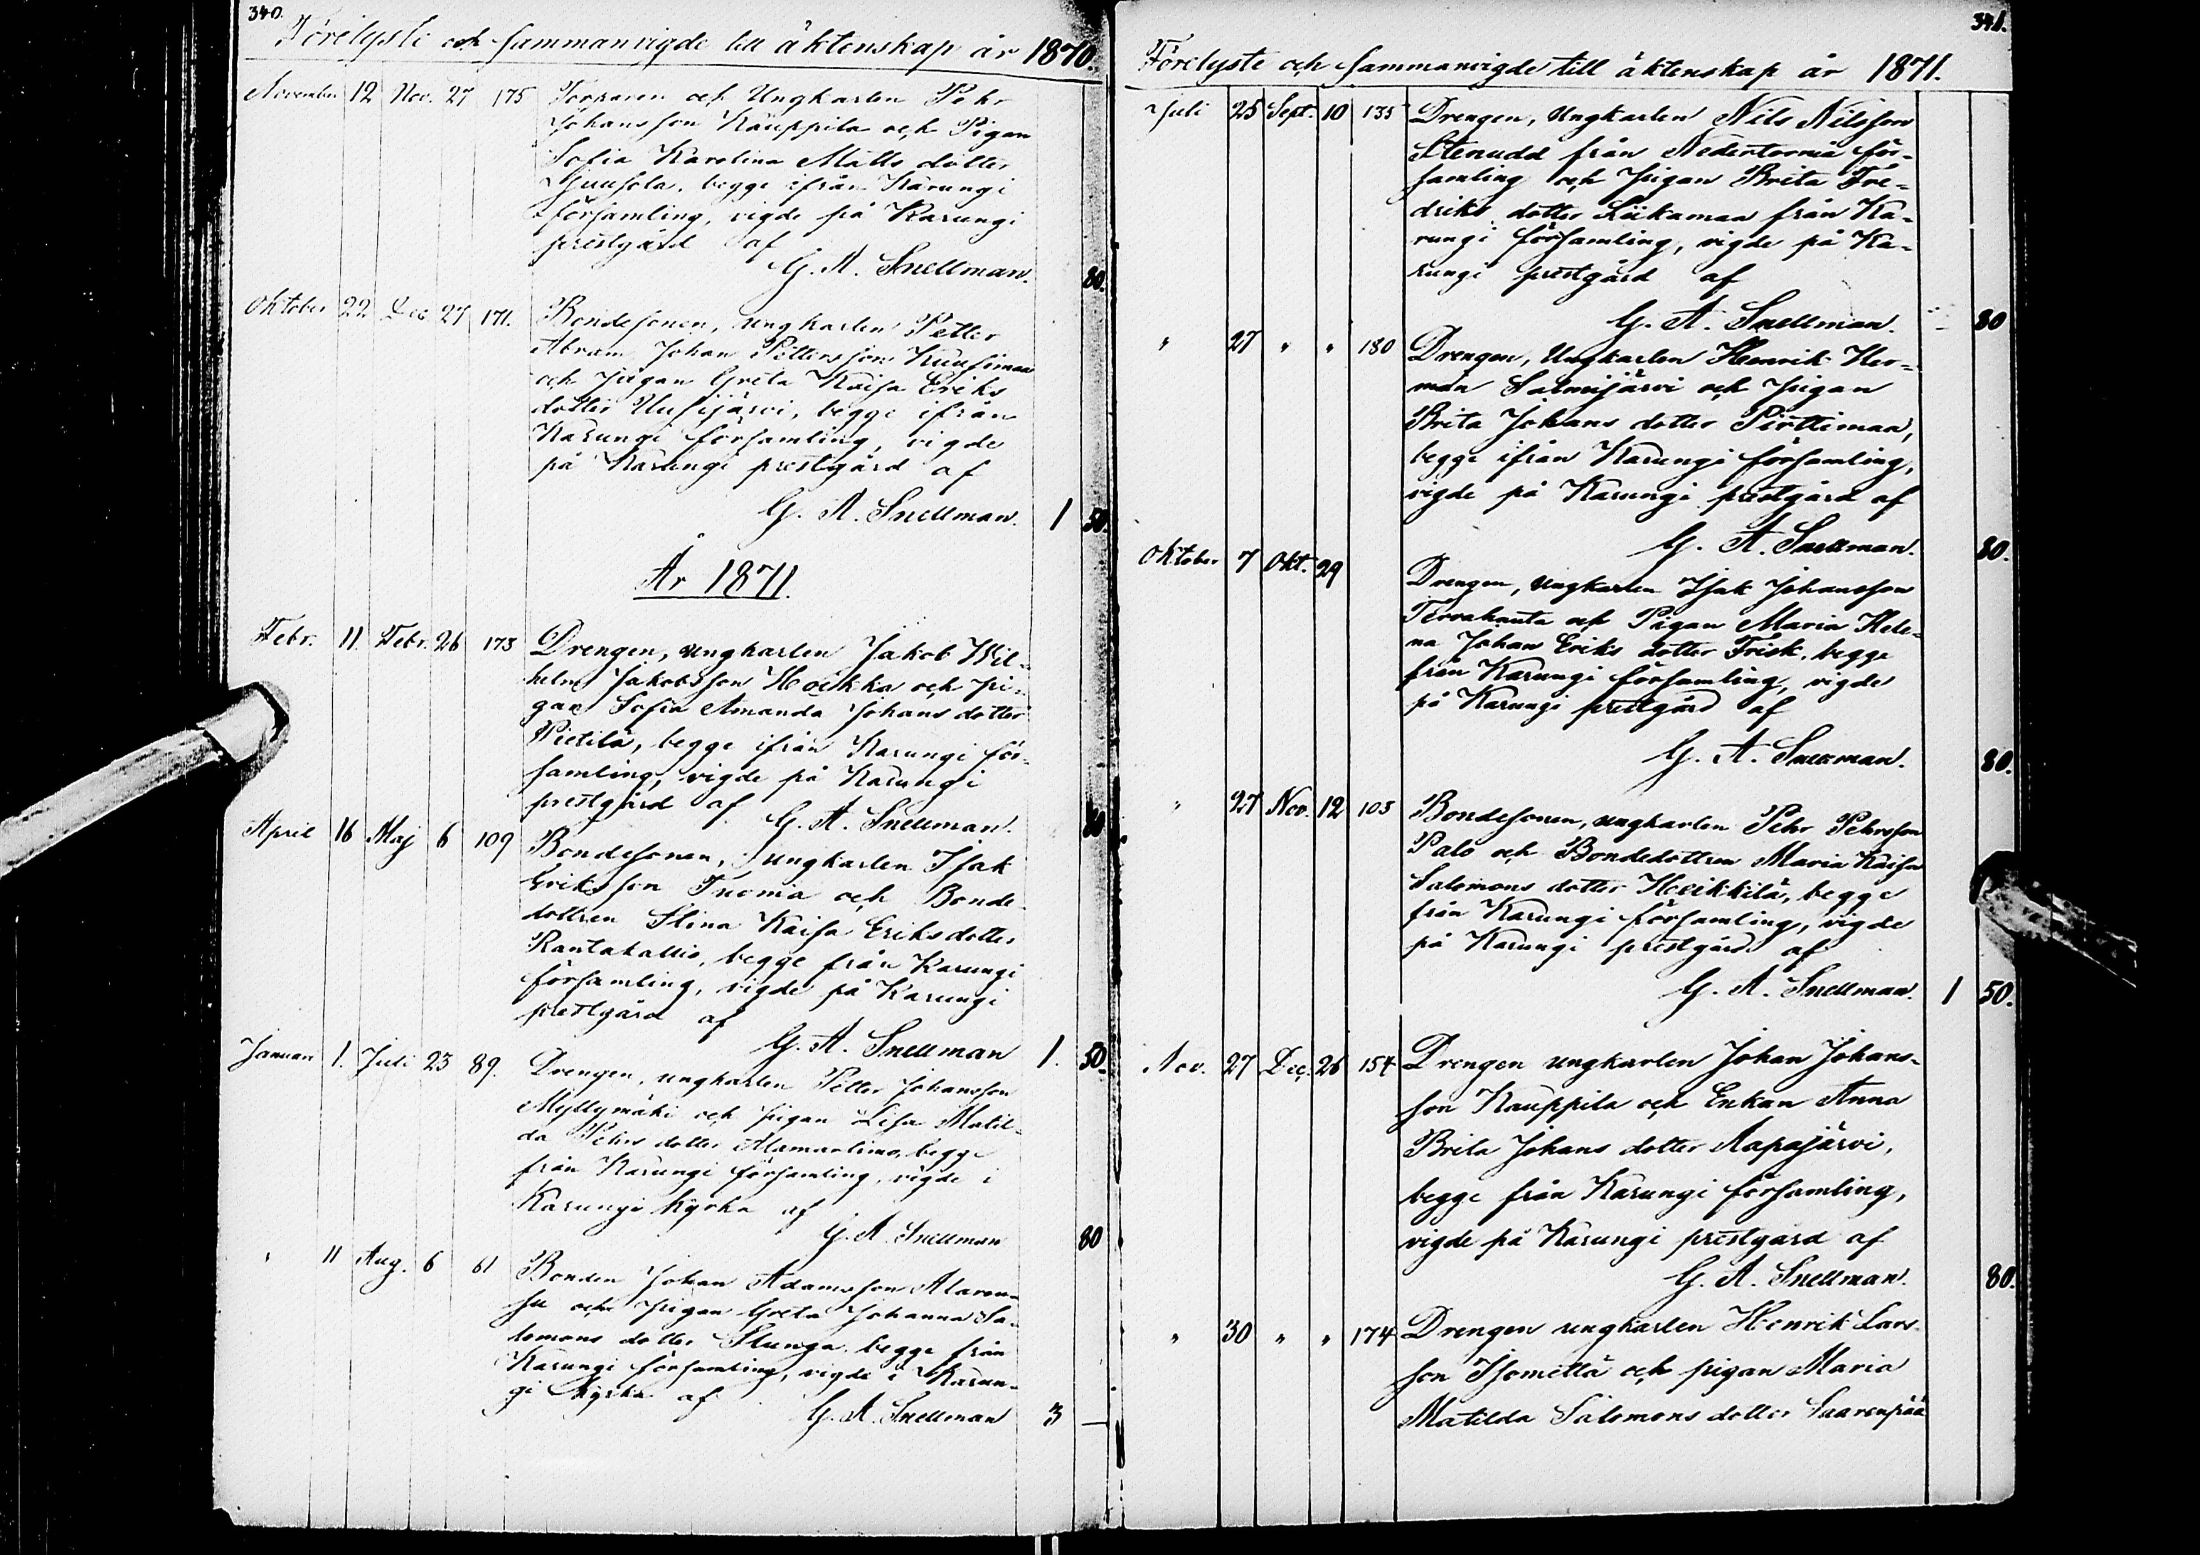 340.
Förelyste och sammanvigde till äktenskap år 1870.
November 12 Nov. 27 175 Torparen och Ungkarlen Pehr
Johansson Kauppila och Pigan
Sofia Karolina Matts dotter
begge ifrån Karungi
församling, vigde på Karungi
prestgård af
G. A. Snellman. 80.
Oktober 22 Dec. 27 171. Bondesonen, ungkarlen Petter
Abram Johan Pettersson Kuusimaa
och pigan Greta Kaisa Eriks
dotter Uusijärvi, begge ifrån
Karungi församling, vigde
på Karungi prestgård af
G. A. Snellman. 1 50.
År 1871.
Febr. 11. Febr. 26 173 Drengen, ungkarlen Jakob Wil-
helm Jakobsson Hoikka och pi-
gan Sofia Amanda Johans dotter
Pietilä, begge ifrån Karungi för-
samling, vigde på Karungi
prestgård af G. A. Snellman. 80
April 16 Maj 6 109 Bondesonen, ungkarlen Isak
Eriksson och Bonde-
dottren Stina Kaisa Eriksdotter
Rantakallio, begge från Karungi
församling, vigde på Karungi
prestgård af
G. A. Snellman 1. 50.
Januari 1. Juli 23 89. Drengen, ungkarlen Petter Johansson
Myllymäki och pigan Lisa Matil-
da Pehrs dotter begge
från Karungi församling, vigde i
Karungi kyrka af
G. A. Snellman 80
" 11 Aug. 6 61 Bonden Johan Adamsson
och pigan Greta Johanna Sa-
lomons dotter Stunga begge från
Karungi församling, vigde i Karun-
gi kyrka af G. A. Snellman 3 —
341.
Förelyste och sammanvigde till äktenskap år 1871.
Juli 25 Sept. 10 135 Drengen, Ungkarlen Nils Nilsson
Stenudd från Nedertorneå för-
samling och pigan Brita Fre-
driks dotter Liikamaa från Ka-
rungi församling, vigde på Ka-
rungi prestgård af
G. A. Snellman. 80
" 27 " " 180 Drengen, Ungkarlen Henrik Her-
man Salmijärvi och pigan
Brita Johans dotter Pirttimaa,
begge ifrån Karungi församling,
vigde på Karungi prestgård af
G. A. Snellman. 80.
Oktober 7 Okt. 29 Drengen, ungkarlen Isak Johansson
Tervahauta och Pigan Maria Hele-
na Johan Eriks dotter Frisk, begge
från Karungi församling, vigde
på Karungi prestgård af
G. A. Snellman. 80.
" 27 Nov. 12 105 Bondesonen, ungkarlen Pehr Pehrsson
Palo och Bondedottren Maria Kaisa
Salomons dotter Heikkilä, begge
från Karungi församling, vigde
på Karungi prestgård af
G. A. Snellman. 1 50.
Nov. 27 Dec. 26 154 Drengen ungkarlen Johan Johans-
son Kauppila och Enkan Anna
Brita Johans dotter Aapajärvi,
begge från Karungi församling,
vigde på Karungi prestgård af
G. A. Snellman. 80.
" 30 " " 174 Drengen ungkarlen Henrik Lars-
son Isomettä och pigan Maria
Matilda Salomons dotter Saarenpää